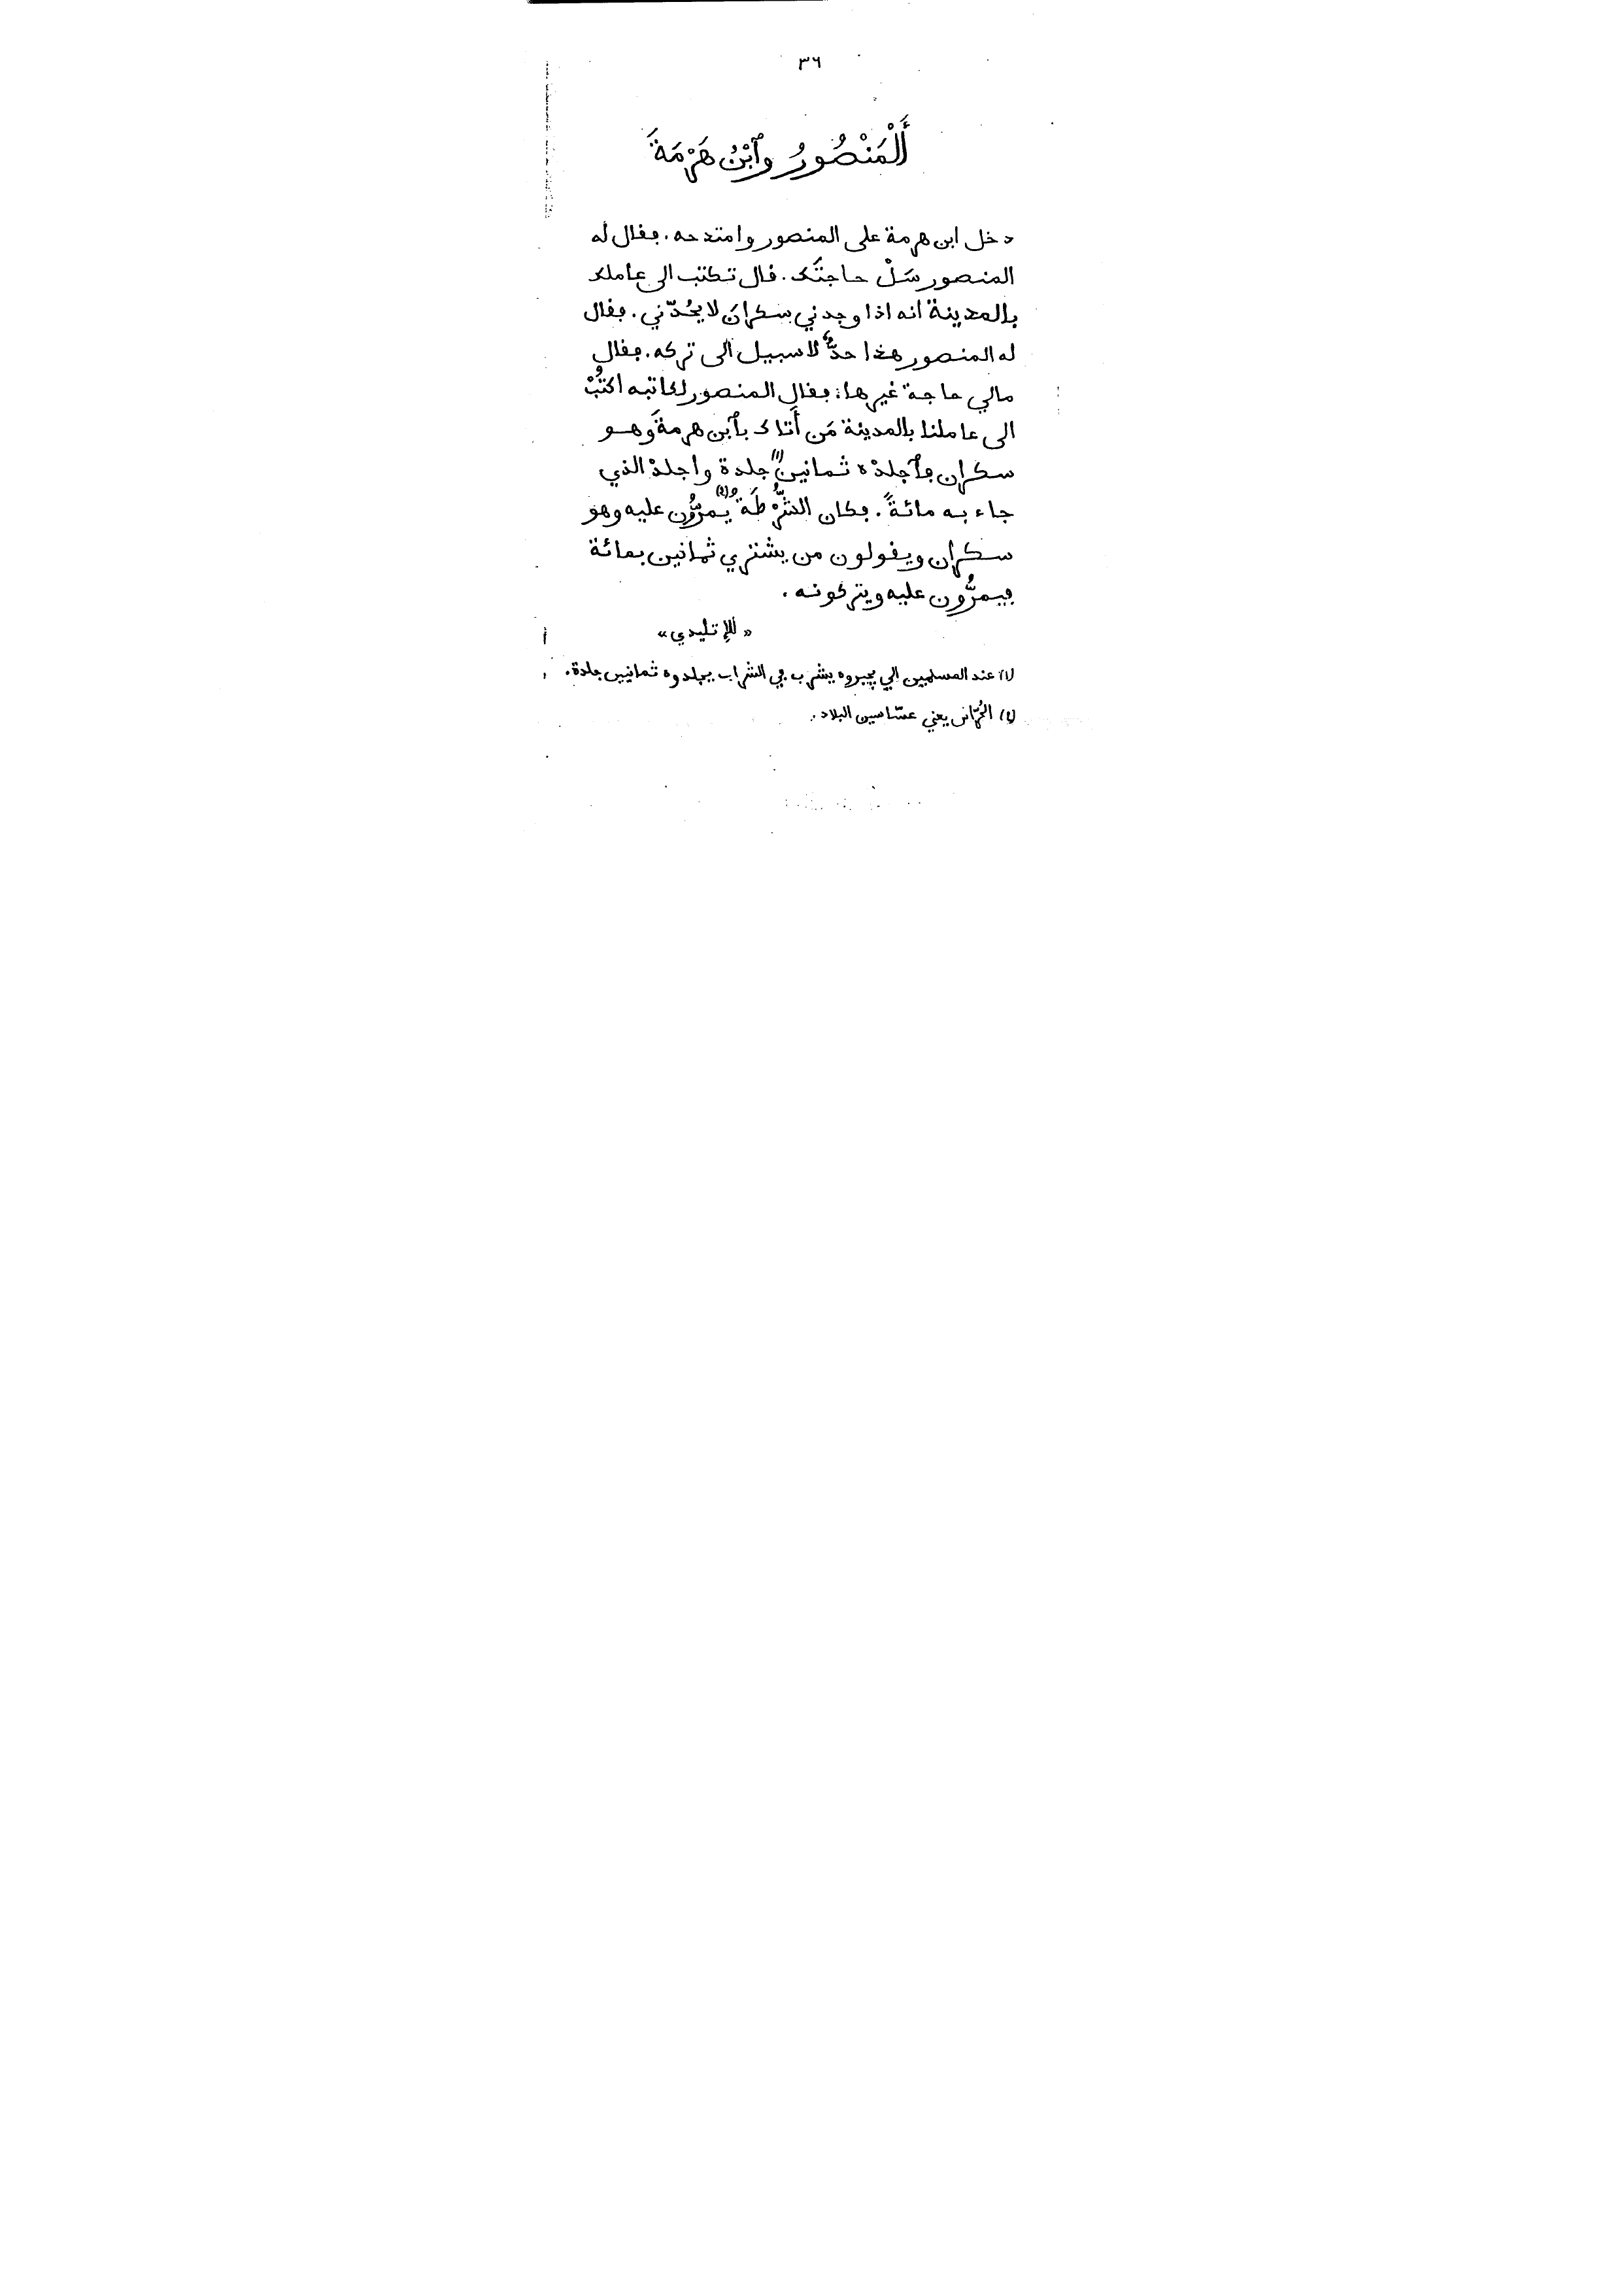 ٣٦
أَلْمَنْصُورُ وٱبْنُ هَرْمَةَ
دخل ابن هرمة على المنصور وامتدحه. ڢڧال له
المنصور سَلْ حاجتَك. ڧال تكتب الى عاملك
بالمدينة انه اذا وجدني سكرانَ لا يحُدّني. ڢڧال
له المنصور هذا حدٌّ لا سبيل الى تركه. ڢڧال
مالي حاجة غيرها: ڢڧال المنصور لكاتبه اكتُبْ
الى عاملنا بالمدينة مَن أَتاك بٱبن هرمةَ وهو
سكران ڢٱجلدْه ثمانين (١) جلدة واجلدْ الذي
جاء به مائةً. ڢكان الشُّرْطَةُ (٢) يمرُّون عليه وهو
سكران ويڧولون من يشتري ثمانين بمائة
ڢيمرُّون عليه ويتركونه.
«للإتليدي»
(١) عند المسلمين الي يجبروه يشرب ڢي الشراب يجلدوه ثمانيين جلدة.
(٢) الحُرّاس يعني عسّاسين البلاد.